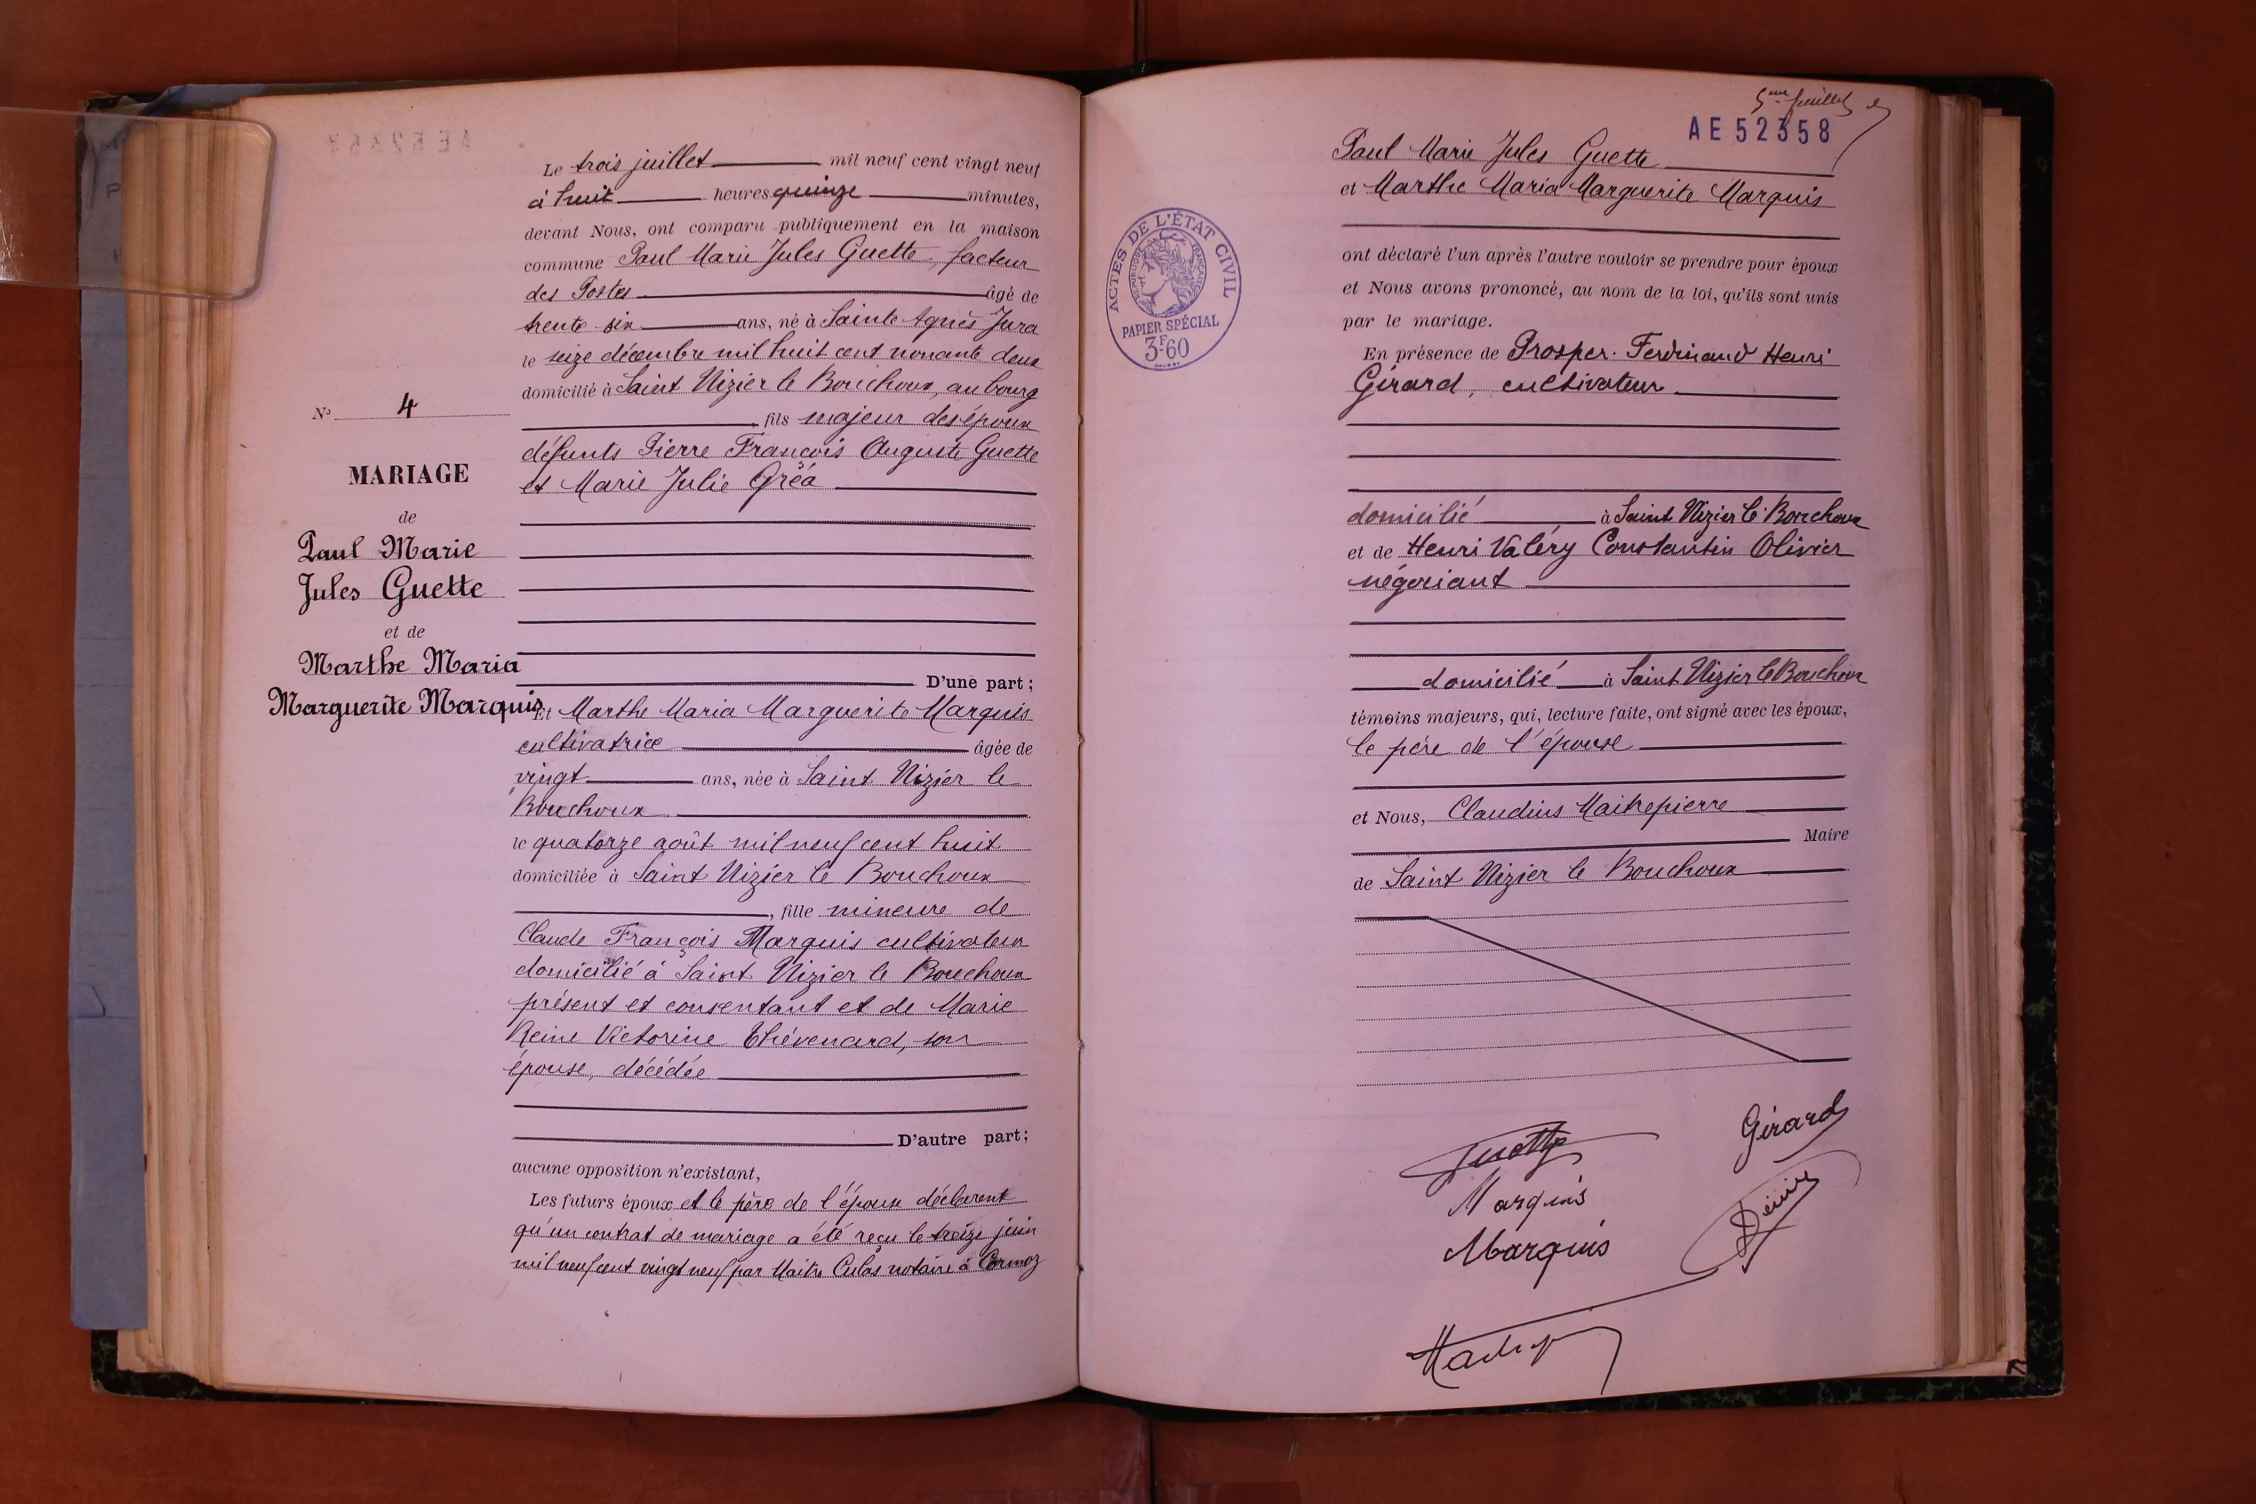 Le trois juillet mil neuf cent vingt neuf
à huit heures quinze minutes,
devant Nous, ont comparu publiquement en la maison
commune Paul Marie Jules Guette, facteur
des Postes âgé de
trente six ans, né à Sainte Agnès Jura
le seize décembre mil huit cent nonante deux
domicilié à Saint Nizier le Bouchoux, au bourg
fils majeur des époux
défunts Pierre François Auguste Guette
et Marie Julie Gréa
N° 4
MARIAGE
de
Paul Marie
Jules Guette
et de
Marthe Maria
Marguerite Marquis
D'une part;
Et Marthe Maria Marguerite Marquis
cultivatrice âgée de
vingt ans, née à Saint Nizier le
Bouchoux
le quatorze août mil neuf cent huit
domiciliée à Saint Nizier le Bouchoux
, fille mineure de
Claude François Marquis cultivateur
domicilié à Saint Nizier le Bouchoux
présent et consentant et de Marie
Reine Victorine Thévenard, son
épouse, décédée
D'autre part;
aucune opposition n'existant,
Les futurs époux et le père de l'époux déclarent
qu'un contrat de mariage a été reçu le treize juin
mil neuf cent vingt neuf par Maître Culas notaire à Cormoz
5me feuillet
AE 52358
Paul Marie Jules Guette
et Marthe Maria Marguerite Marquis
ACTES DE L'ÉTAT CIVIL
PAPIER SPÉCIAL
3F60
ont déclaré l'un après l'autre vouloir se prendre pour époux
et Nous avons prononcé, au nom de la loi, qu'ils sont unis
par le mariage.
En présence de Prosper Ferdinand Henri
Gérard, cultivateur
domicilié à Saint Nizier le Bouchoux
et de Henri Valéry Constantin Olivier
négociant
domicilié à Saint Nizier le Bouchoux
témoins majeurs, qui, lecture faite, ont signé avec les époux,
le père de l'épouse
et Nous, Claudius Maitrepierre
Maire
de Saint Nizier le Bouchoux
Guette
Gérard
Marquis
Marquis